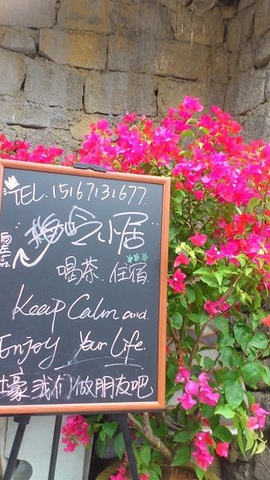 TEL.15167131677.
小居
喝茶.住宿
Keep Calm and
Enjoy Your Life
土豪我们做朋友吧